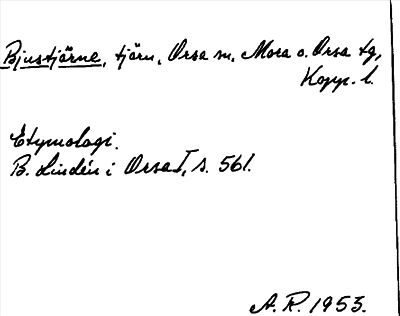 Bjustjärne, tjärn, Orsa sn, Mora o. Orsa tg,
Kopp. l.
Etymologi.
B. Lindén i Orsa I, s. 561.
A. R. 1953.